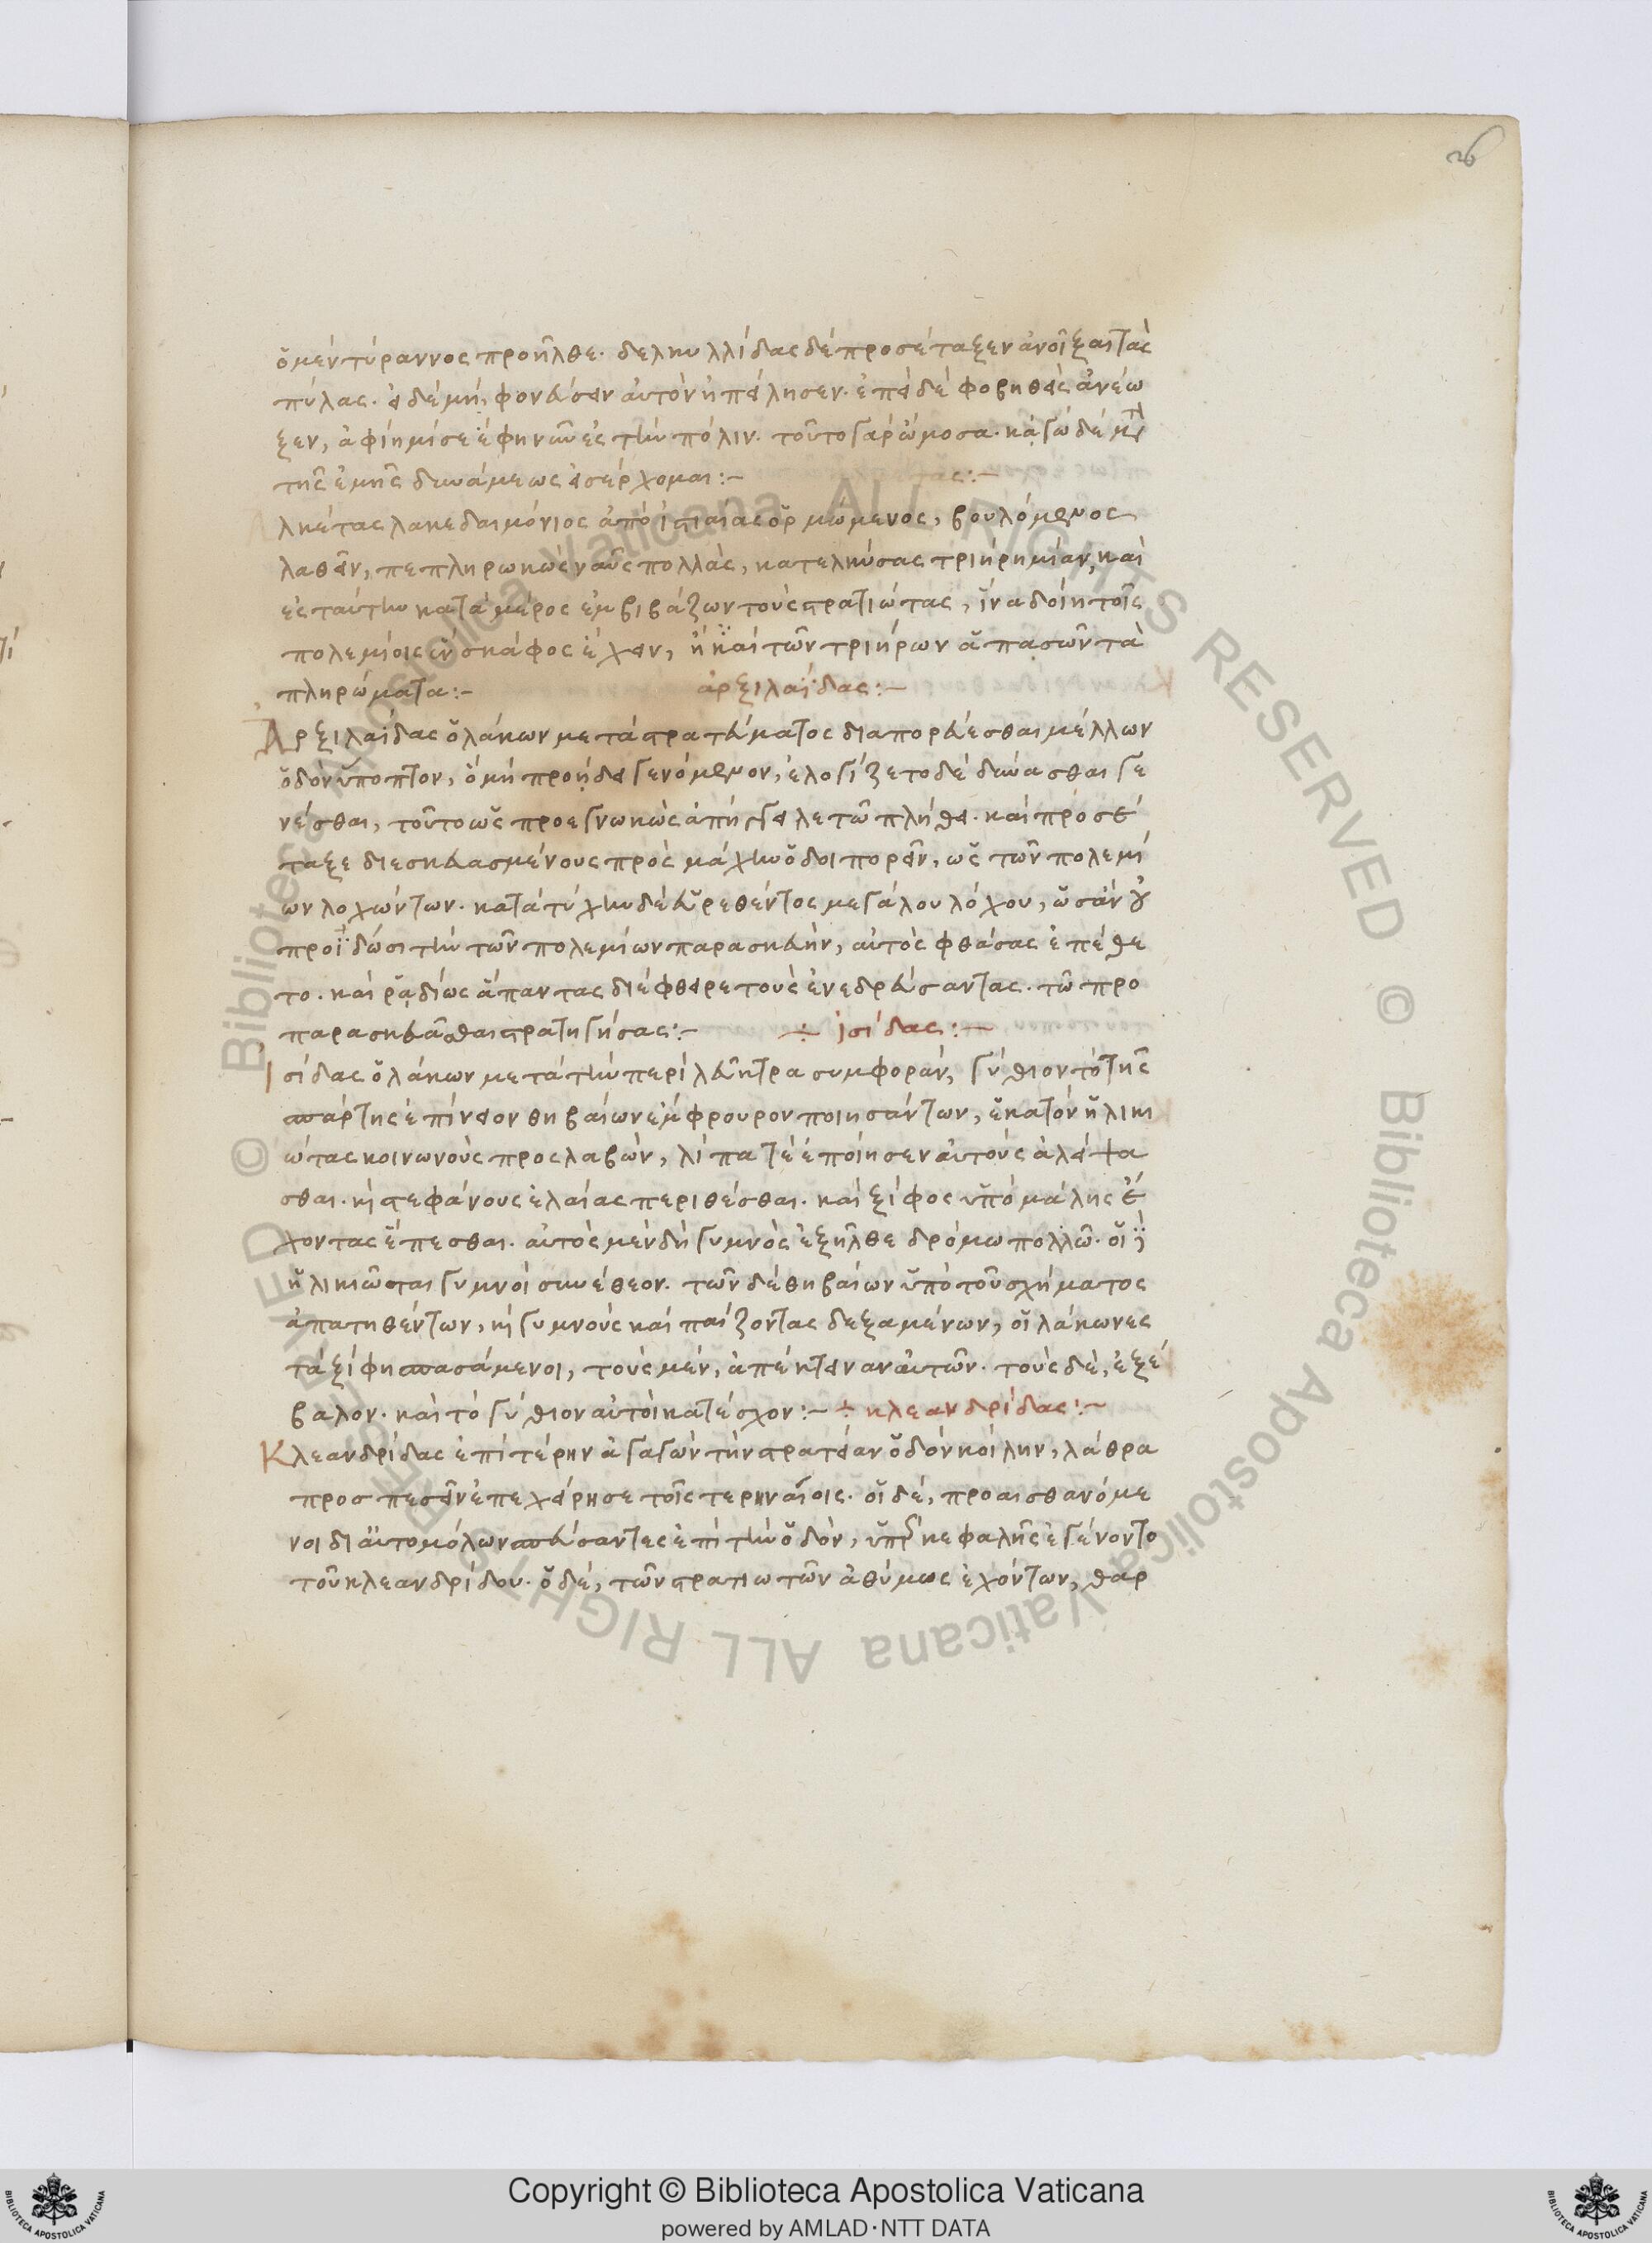 26
ὁ μὲν τύραννος προῆλθε. δερκυλλίδας δὲ προσέταξεν ἀνοῖξαι τὰς
πύλας. εἰ δὲ μὴ, φονεύσειν αὐτὸν ἠπείλησεν. ἐπεὶ δὲ φοβηθεὶς ἀνέω
ξεν, ἀφίημί σε ἔφη νῦν ἐς τὴν πόλιν. τοῦτο γὰρ ὤμοσα. κἀγὼ δὲ μετὰ
τῆς ἐμῆς δυνάμεως εἰσέρχομαι:-
λκέτας λακεδαιμόνιος ἀπὸ ἱστιαίας ὁρμώμενος, βουλόμενος
λαθεῖν, πεπληρωκὼς ναῦς πολλὰς, κατελκύσας τριήρη μίαν, καὶ
ἐς ταύτην κατὰ μέρος ἐμβιβάζων τοὺς στρατιώτας, ἵνα δοίη τοῖς
πολεμίοις ἓν σκάφος ἔχειν, ἢ καὶ τῶν τριήρων ἁπασῶν τὰ
πληρώματα:- ἀρξιλαΐδας:-
Ἀρξιλαΐδας ὁ λάκων μετὰ στρατεύματος διαπορεύεσθαι μέλλων
ὁδὸν ὕποπτον, ὃ μὴ προῄδει γενόμενον, ἐλογίζετο δὲ δύνασθαι γε
νέσθαι, τοῦτο ὡς προεγνωκὼς ἀπήγγειλε τῶ πλήθει. καὶ προσέ
ταξε διεσκευασμένους πρὸς μάχην ὁδοιπορεῖν, ὡς τῶν πολεμί
ων λοχώντων. κατὰ τύχην δὲ εὑρεθέντος μεγάλου λόχου, ὡς ἂν οὐ
προΐδωσι τὴν τῶν πολεμίων παρασκευὴν, αὐτὸς φθάσας ἐπέθε
το. καὶ ῥᾳδίως ἅπαντας διέφθειρε τοὺς ἐνεδρεύσαντας. τῶ προ
παρασκευᾶσθαι στρατηγήσας:- ÷ ἰσίδας:-
Ἰσίδας ὁ λάκων μετὰ τὴν περὶ λεῦκτρα συμφορὰν, γύθιον τὸ τῆς
σπάρτης ἐπίνειον θηβαίων ἔμφρουρον ποιησάντων, ἑκατὸν ἡλικι
ώτας κοινωνοὺς προσλαβὼν, λίπα τὲ ἐποίησεν αὐτοὺς ἀλείψα
σθαι. καὶ στεφάνους ἐλαίας περιθέσθαι. καὶ ξίφος ὑπὸ μάλης ἔ
χοντας ἕπεσθαι. αὐτὸς μὲν δὴ γυμνὸς ἐξῆλθε δρόμω πολλῶ. οἱ
ἡλικιῶται γυμνοὶ συνέθεον. τῶν δὲ θηβαίων ὑπὸ τοῦ σχήματος
ἀπατηθέντων, καὶ γυμνοὺς καὶ παίζοντας δεξαμένων, οἱ λάκωνες
τὰ ξίφη σπασάμενοι, τοὺς μὲν, ἀπέκτειναν αὐτῶν. τοὺς δὲ, ἐξέ
βαλον. καὶ τὸ γύθιον αὐτοὶ κατέσχον:- ÷ κλεανδρίδας:-
Κλεανδρίδας ἐπὶ τέρην ἀγαγὼν τὴν στρατείαν ὁδὸν κοίλην, λάθρα
προσπεσεῖν ἐπεχείρησε τοῖς τερηναίοις. οἱ δὲ, προαισθανόμε
νοι δι᾽ αὐτομόλων σπεύσαντες ἐπὶ τὴν ὁδὸν, ὑπὲρ κεφαλῆς ἐγένοντο
τοῦ κλεανδρίδου. ὁ δὲ, τῶν στρατιωτῶν ἀθύμως ἐχόντων, θαρ
Copyright © Biblioteca Apostolica Vaticana
powered by AMLAD·NTT DATA